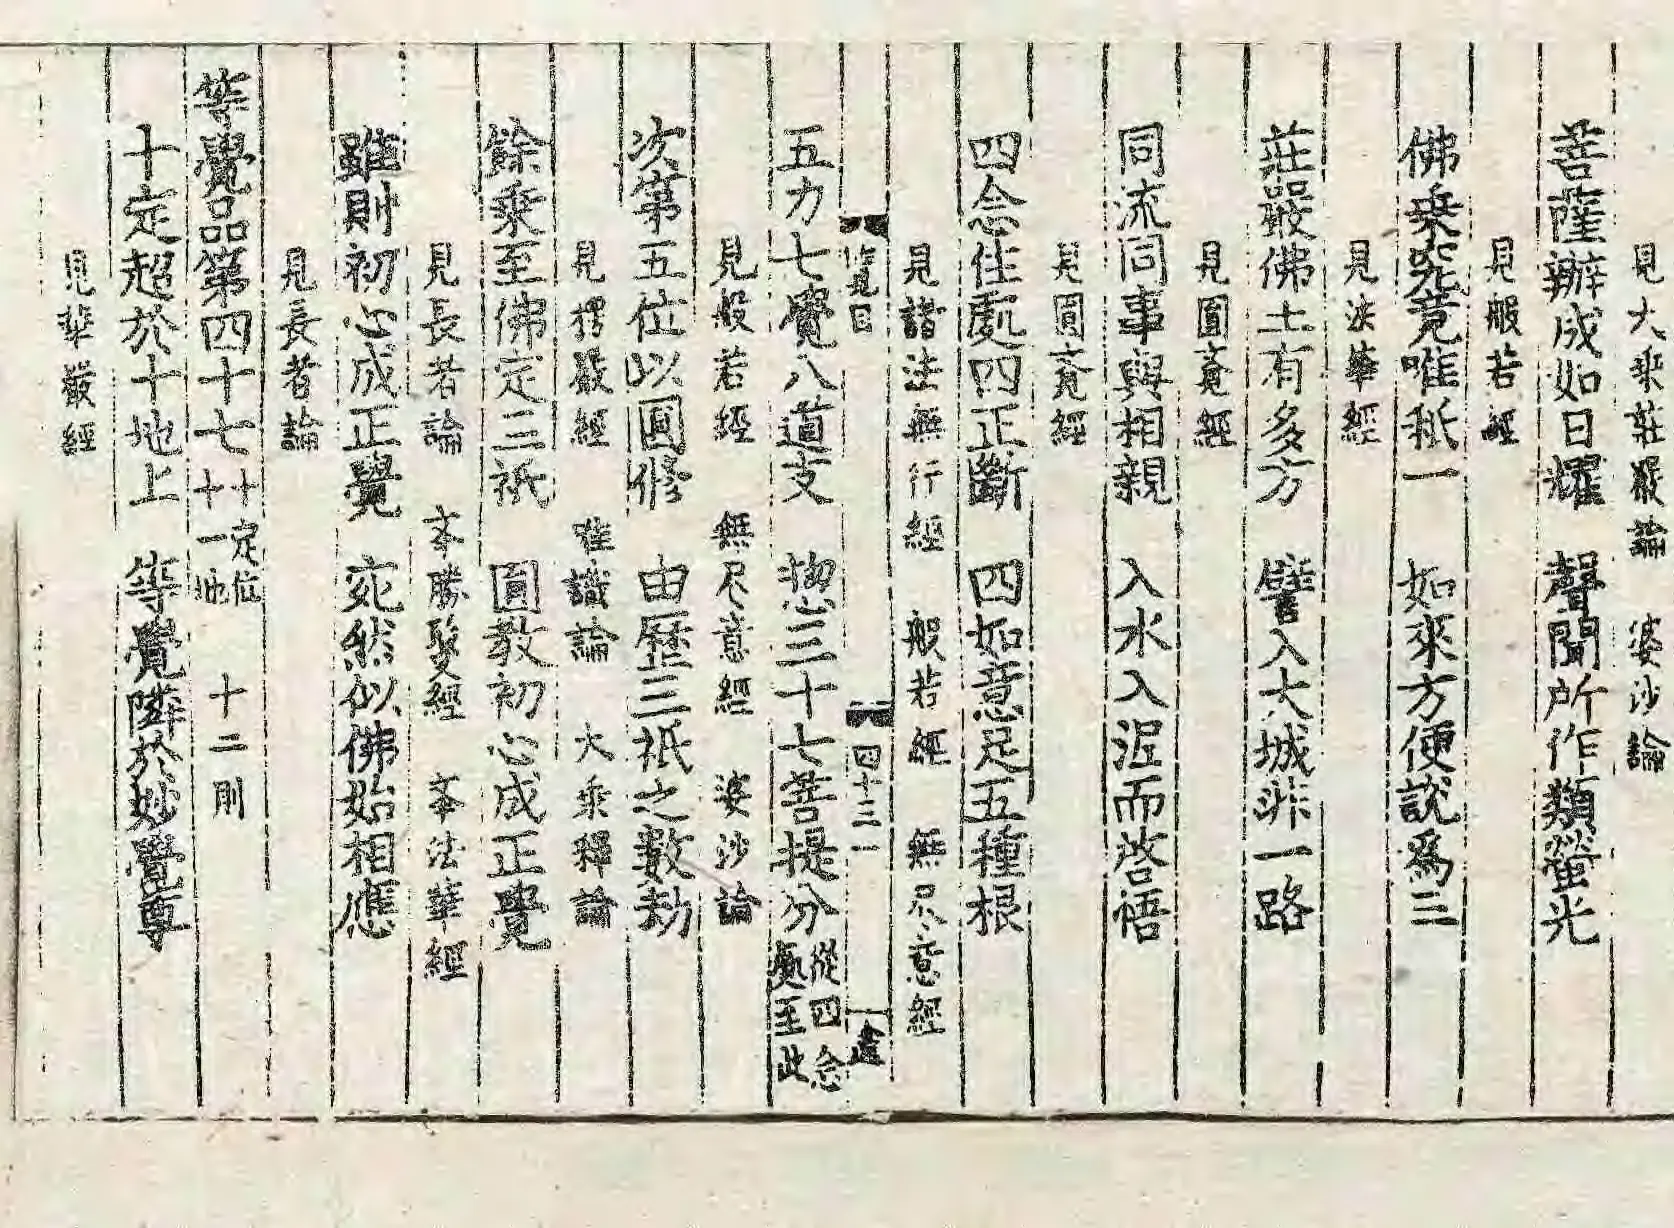 見大乘莊嚴論 婆沙論
菩薩辦成如日耀 聲聞所作類螢光
見般若經
佛乘究竟唯秖一 如來方便說爲三
見法華經
莊嚴佛土有多方 譬入大城非一路
見圓覺經
同流同事與相親 入水入泥而啓悟
見圓覺經
四念住處四正斷 四如意足五種根
見諸法無行經 般若經 無尽意經
四十三
五力七覺八道支 惣三十七菩提分 從四念處至此
見般若經 無尽意經 婆沙論
次第五位以圓修 由歷三祇之數劫
見楞嚴經 唯識論 大乘釋論
餘乘至佛定三祇 圓教初心成正覺
見長者論 夲勝鬘經 夲法華經
雖則初心成正覺 宛然似佛始相應
見長者論
等覺品第四十七 十定位十一地 十二則
十定超於十地上 等覺隣於妙覺尊
見華嚴經